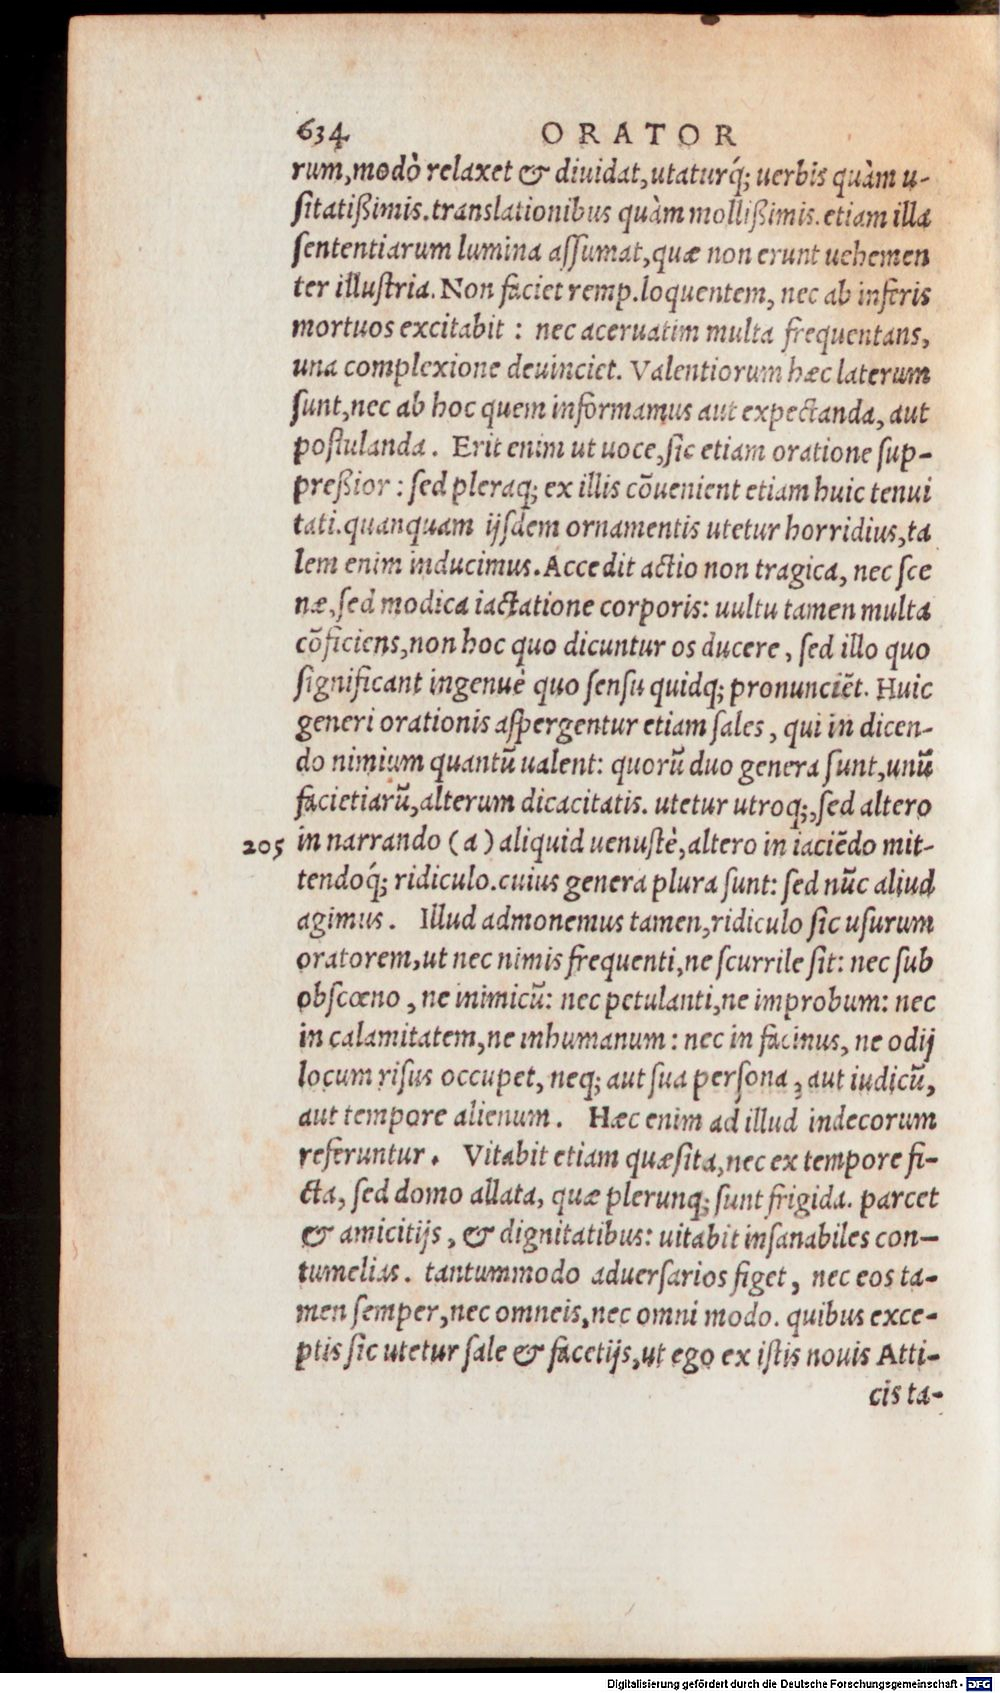 634 ORATOR
rum, modò relaxet & diuidat, utaturq́; uerbis quàm u-
sitatißimis. translationibus quàm mollißimis. etiam illa
sententiarum lumina assumat, quæ non erunt uehemen
ter illustria. Non faciet remp. loquentem, nec ab inferis
mortuos excitabit : nec aceruatim multa frequentans,
una complexione deuinciet. Valentiorum hæc laterum
sunt, nec ab hoc quem informamus aut expectanda, aut
postulanda. Erit enim ut uoce, sic etiam oratione sup-
preßior : sed pleraq; ex illis cōuenient etiam huic tenui
tati. quanquam ijsdem ornamentis utetur horridius, ta
lem enim inducimus. Accedit actio non tragica, nec sce
næ, sed modica iactatione corporis: uultu tamen multa
cōficiens, non hoc quo dicuntur os ducere, sed illo quo
significant ingenuè quo sensu quidq; pronunciēt. Huic
generi orationis aspergentur etiam sales, qui in dicen-
do nimium quantū ualent: quorū duo genera sunt, unū
facietiarū, alterum dicacitatis. utetur utroq;, sed altero
205 in narrando (a) aliquid uenustè, altero in iaciēdo mit-
tendoq́; ridiculo. cuius genera plura sunt: sed nūc aliud
agimus. Illud admonemus tamen, ridiculo sic usurum
oratorem, ut nec nimis frequenti, ne scurrile sit: nec sub
obscœno, ne inimicū: nec petulanti, ne improbum: nec
in calamitatem, ne inhumanum : nec in facinus, ne odij
locum risus occupet, neq; aut sua persona, aut iudicū,
aut tempore alienum. Hæc enim ad illud indecorum
referuntur. Vitabit etiam quæsita, nec ex tempore fi-
cta, sed domo allata, quæ plerunq; sunt frigida. parcet
& amicitijs, & dignitatibus: uitabit insanabiles con-
tumelias. tantummodo aduersarios figet, nec eos ta-
men semper, nec omneis, nec omni modo. quibus exce-
ptis sic utetur sale & facetijs, ut ego ex istis nouis Atti-
cis ta-
Digitalisierung gefördert durch die Deutsche Forschungsgemeinschaft - DFG